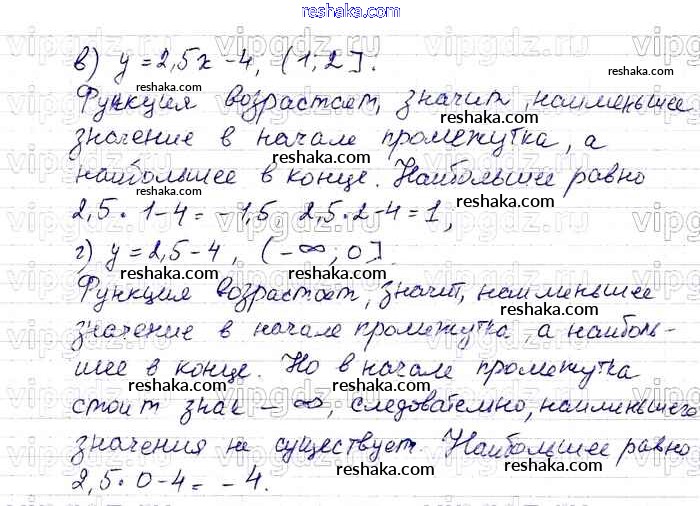 reshaka.com
в) y = 2,5x - 4, (1; 2].
Функция возрастает, значит, наименьшее
значение в начале промежутка, а
наибольшее в конце. Наибольшее равно
2,5 · 1 - 4 = -1,5, 2,5 · 2 - 4 = 1,
г) y = 2,5 - 4, (-∞; 0].
Функция возрастает, значит, наименьшее
значение в начале промежутка, а наиболь-
шее в конце. Но в начале промежутка
стоит знак -∞, следовательно, наименьшего
значения не существует. Наибольшее равно
2,5 · 0 - 4 = -4.